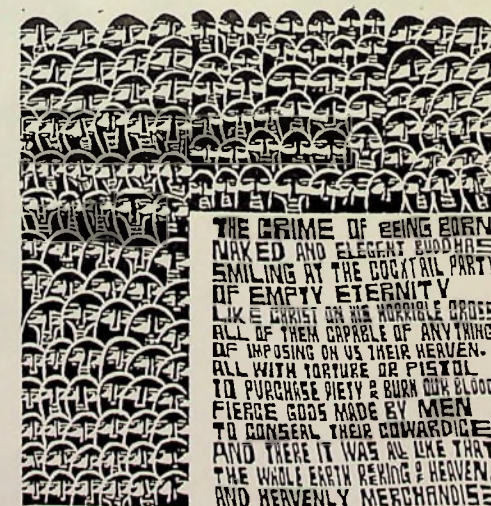 THE CRIME OF BEING BORN
NAKED AND ELEGENT BUDDHAS
SMILING AT THE COCKTAIL PARTY
OF EMPTY ETERNITY
LIKE CHRIST ON HIS HORRIBLE CROSS
ALL OF THEM CAPABLE OF ANYTHING
OF IMPOSING ON US THEIR HEAVEN.
ALL WITH TORTURE OR PISTOL
TO PURCHASE PIETY & BURN OUR BLOOD
FIERCE GODS MADE BY MEN
TO CONSEAL THEIR COWARDICE
AND THERE IT WAS ALL LIKE THAT
THE WHOLE EARTH REKING & HEAVEN
AND HEAVENLY MERCHANDISE